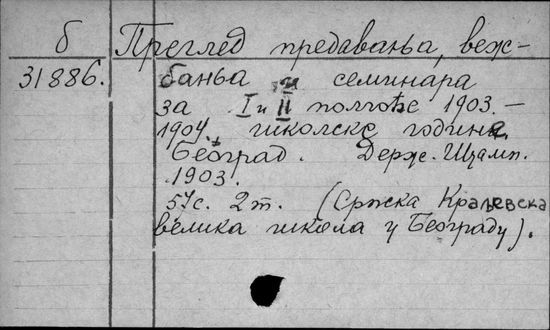 б Преглед предавања, веж-
31886. бања и семинара
за I и II полгође 1903.—
1904. школске године.
Београд. Держ. Штамп.
1903.
57с. 2т. (Српска Краљевска
велика школа у Београду).